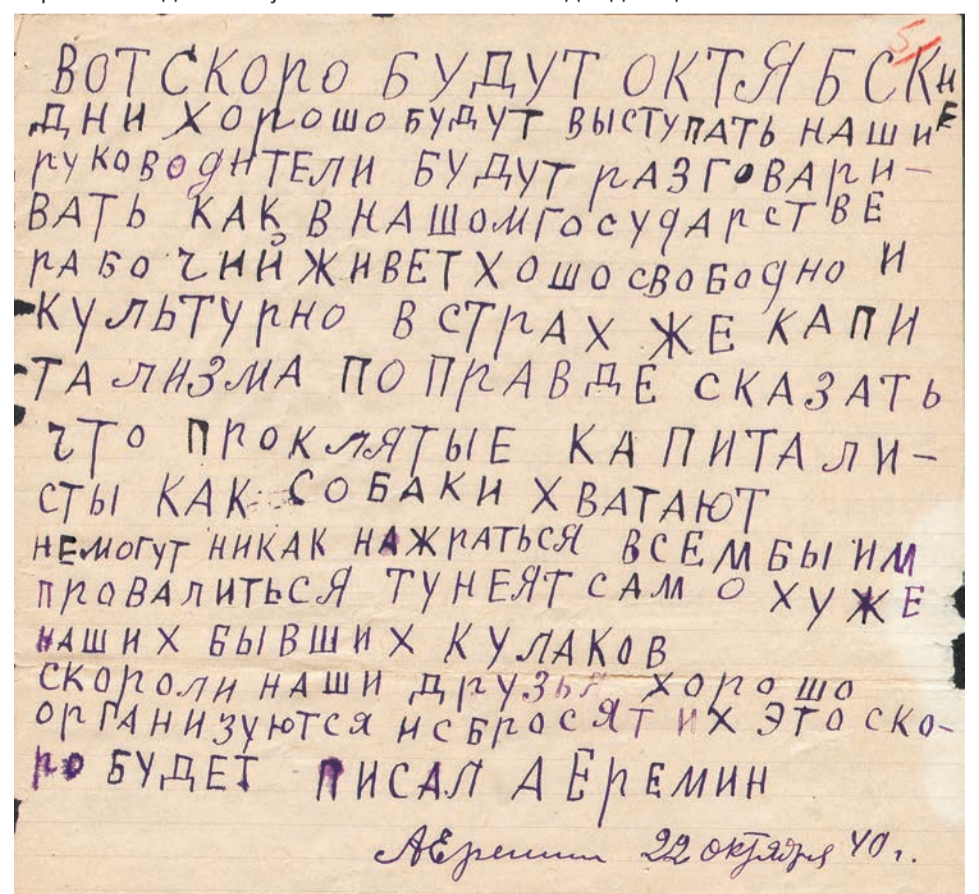 5
ВОТ СКОРО БУДУТ ОКТЯБСКИЕ
ДНИ ХОРОШО БУДУТ ВЫСТУПАТЬ НАШИ
РУКОВОДИТЕЛИ БУДУТ РАЗГОВАРИ-
ВАТЬ КАК В НАШОМ ГОСУДАРСТВЕ
РАБОЧИЙ ЖИВЕТ ХОШО СВОБОДНО И
КУЛЬТУРНО В СТРАХ ЖЕ КАПИ
ТАЛИЗМА ПО ПРАВДЕ СКАЗАТЬ
ЧТО ПРОКЛЯТЫЕ КАПИТАЛИ-
СТЫ КАК СОБАКИ ХВАТАЮТ
НЕМОГУТ НИКАК НАЖРАТЬСЯ ВСЕМ БЫ ИМ
ПРОВАЛИТЬСЯ ТУНЕЯТСАМ О ХУЖЕ
НАШИХ БЫВШИХ КУЛАКОВ
СКОРОЛИ НАШИ ДРУЗЬЯ ХОРОШО
ОРГАНИЗУЮТСЯ И СБРОСЯТ ИХ ЭТО СКО-
РО БУДЕТ ПИСАЛ А ЕРЕМИН
АЕремин 22 октября 40 г.